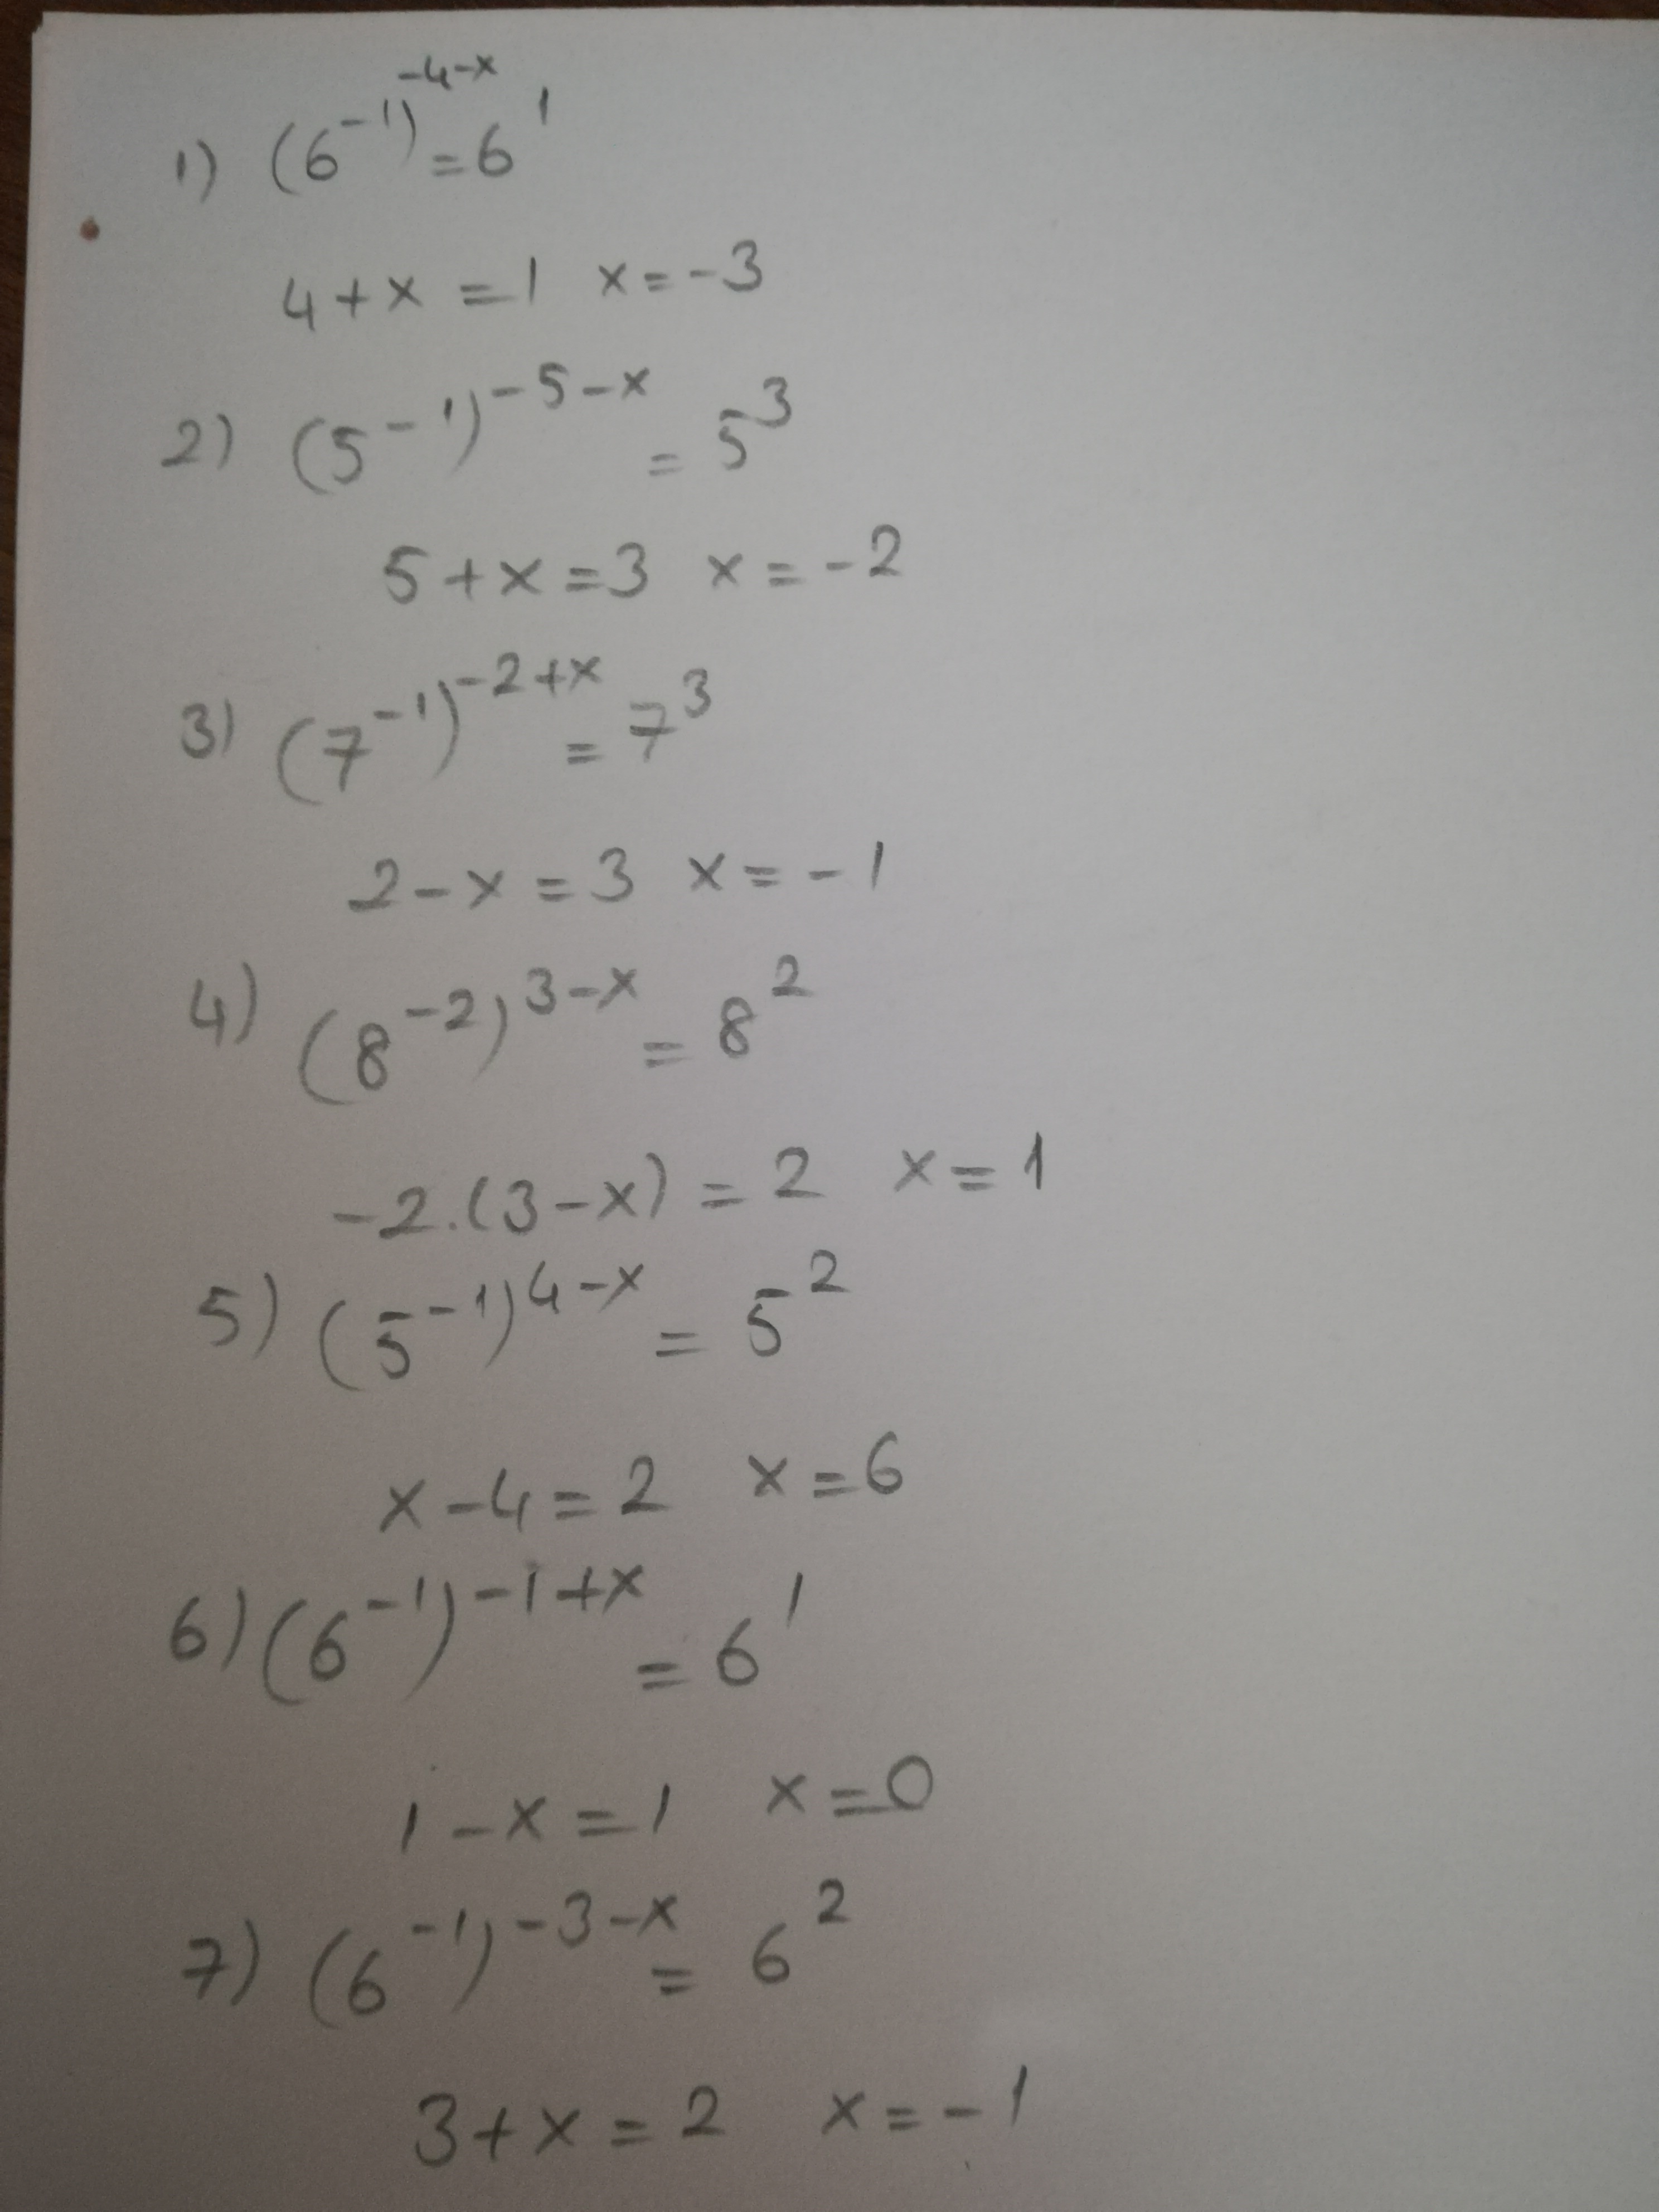 1) (6^-1)^-4-x = 6^1
4+x = 1 x = -3
2) (5^-1)^-5-x = 5^3
5+x = 3 x = -2
3) (7^-1)^-2+x = 7^3
2-x = 3 x = -1
4) (8^-2)^3-x = 8^2
-2.(3-x) = 2 x = 1
5) (5^-1)^4-x = 5^2
x-4 = 2 x = 6
6) (6^-1)^-1+x = 6^1
1-x = 1 x = 0
7) (6^-1)^-3-x = 6^2
3+x = 2 x = -1